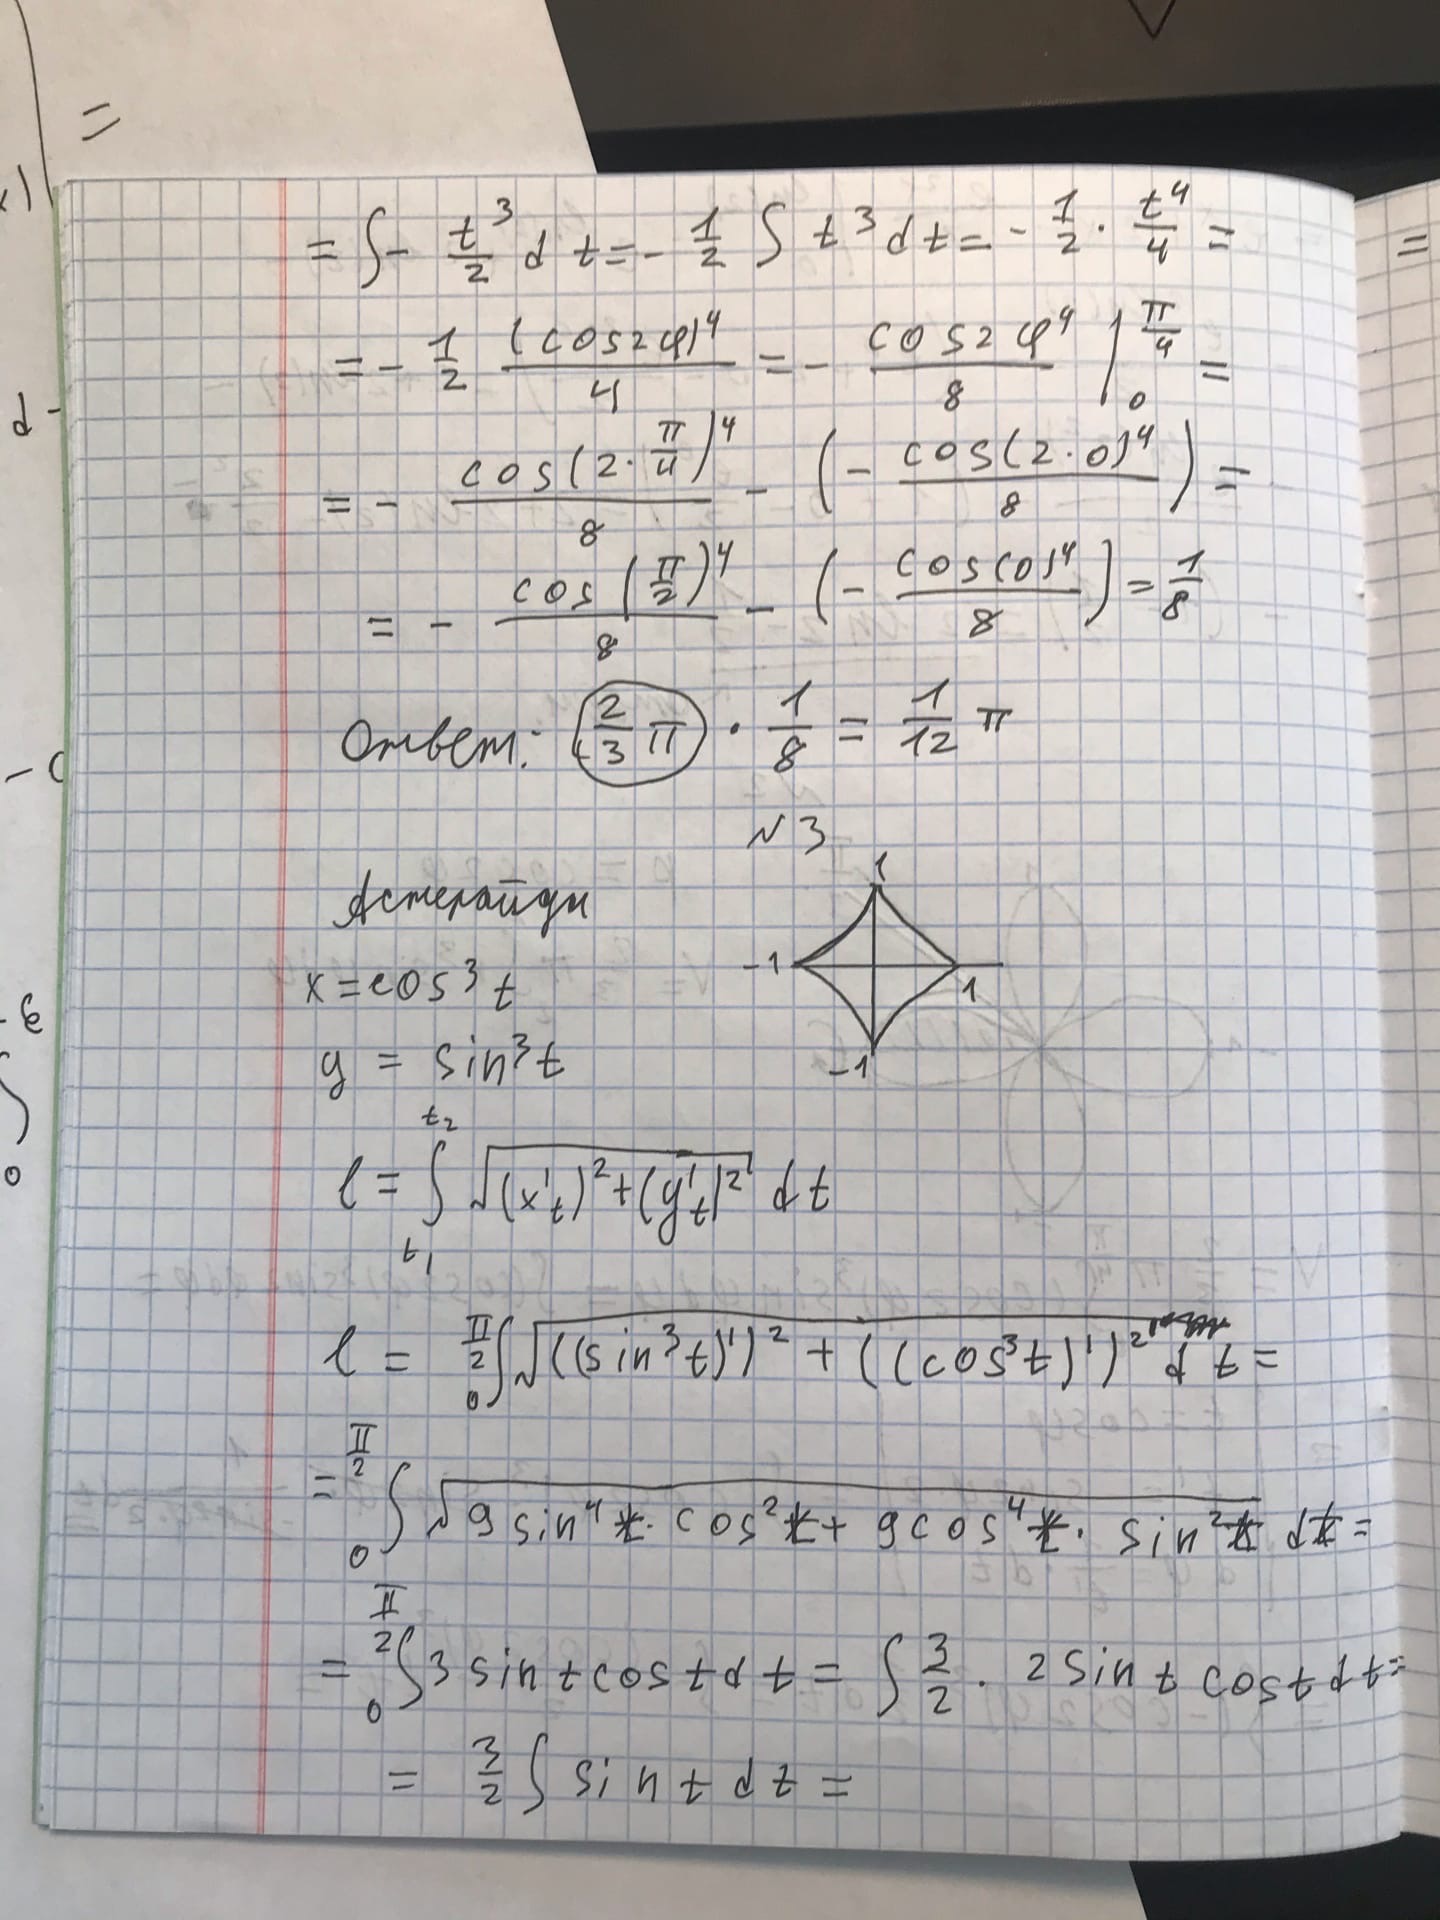 = ∫ - t³/2 dt = - 1/2 ∫ t³ dt = - 1/2 · t⁴/4 =
= - 1/2 (cos2φ)⁴/4 = - cos2φ⁴/8 |₀^(π/4) =
= - cos(2·π/4)⁴/8 - (- cos(2·0)⁴/8) =
= - cos(π/2)⁴/8 - (- cos(0)⁴/8) = 1/8
Ответ: 2/3 π · 1/8 = 1/12 π
N3
Астеройды
1
-1
1
-1
x = cos³t
y = sin³t
l = ∫_(t₁)^(t₂) √((x't)² + (y't)²) dt
l = ∫₀^(π/2) √(((sin³t)')² + ((cos³t)')²) dt =
= ∫₀^(π/2) √(9 sin⁴t · cos²t + 9cos⁴t · sin²t) dt =
= ∫₀^(π/2) 3 sin t cos t dt = ∫ 3/2 · 2 sin t cos t dt =
= 3/2 ∫ sin t dt =